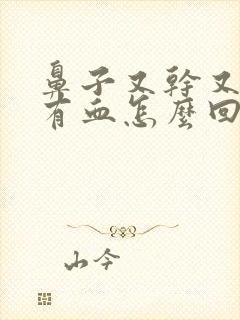 鼻子又幹又
有血怎麼回
山今